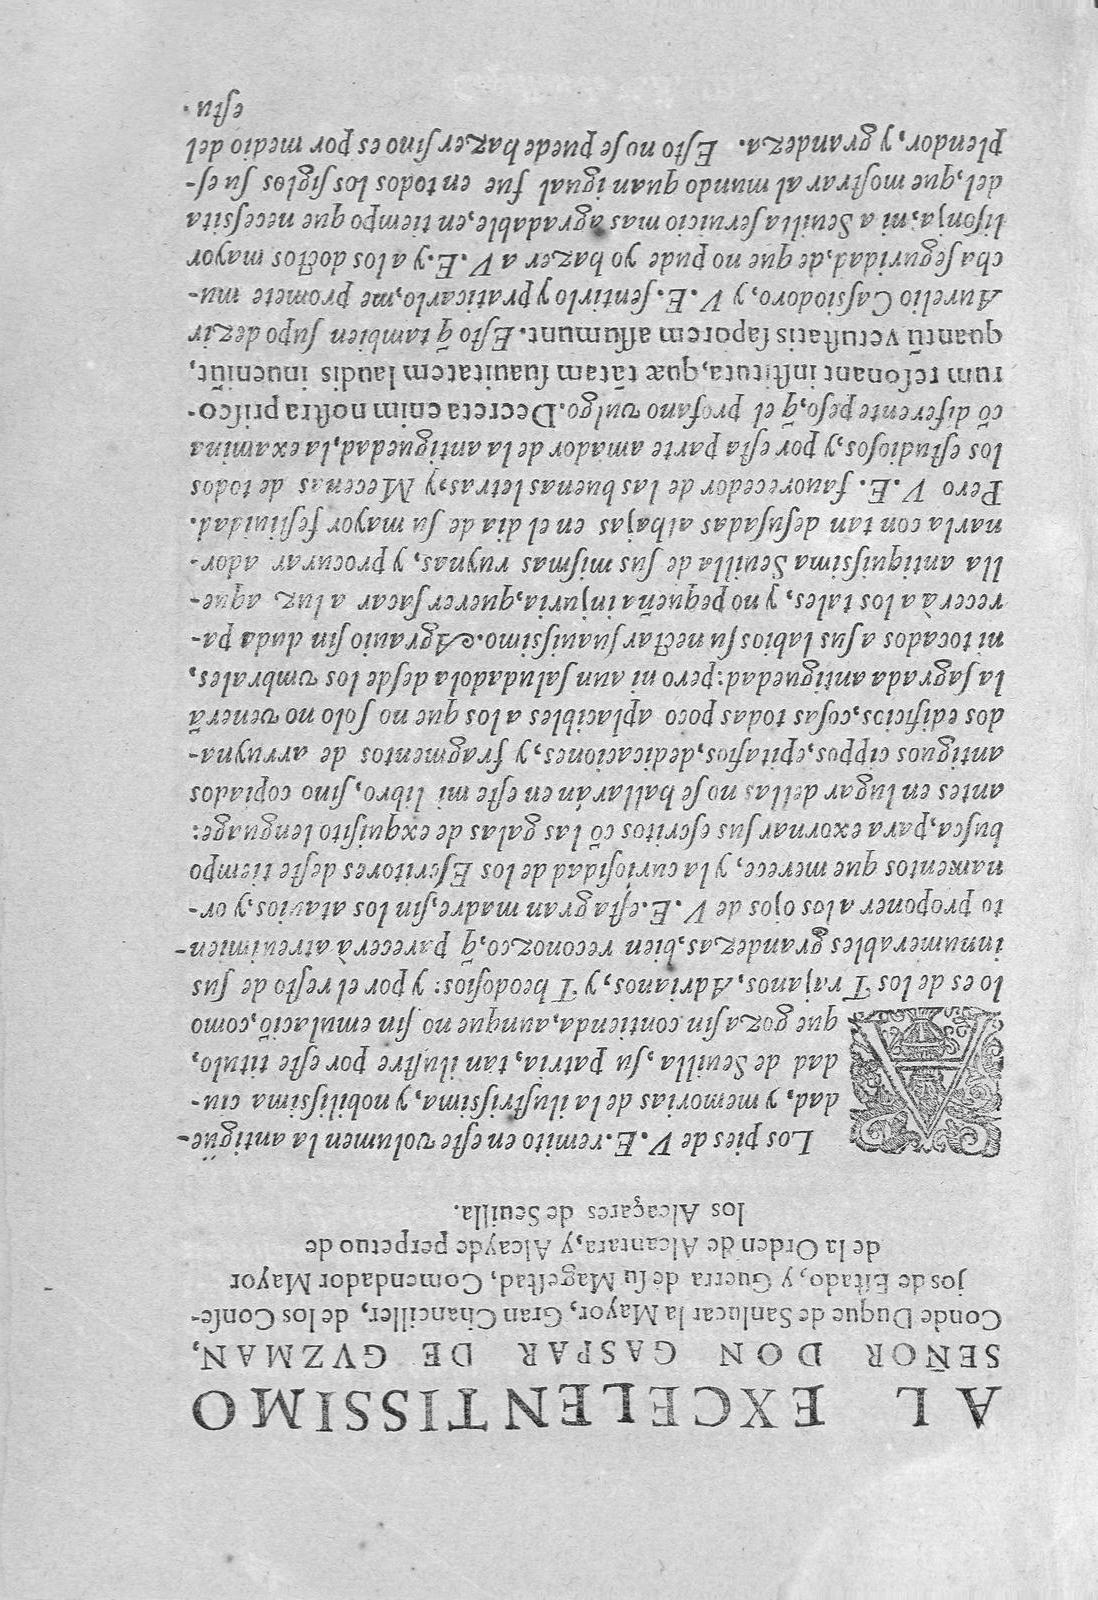 AL EXCELENTISSIMO
SEÑOR DON GASPAR DE GVZMAN,
Conde Duque de Sanlucar la Mayor, Gran Chanciller, de los Conse-
jos de Estado, y Guerra de su Magestad, Comendador Mayor
de la Orden de Alcantara, y Alcayde perpetuo de
los Alcaçares de Seuilla.
A Los pies de V. E. remito en este volumen la antigüe-
dad, y memorias de la ilustrissima, y nobilissima ciu-
dad de Seuilla, su patria, tan ilustre por este titulo,
que goza sin contienda, aunque no sin emulaciõ, como
lo es de los Trajanos, Adrianos, y Theodosios: y por el resto de sus
innumerables grandezas, bien reconozco, q̃ parecerà atreuimien-
to proponer a los ojos de V. E. esta gran madre, sin los atauios, y or-
namentos que merece, y la curiosidad de los Escritores deste tiempo
busca, para exornar sus escritos cõ las galas de exquisito lenguage:
antes en lugar dellas no se hallarán en este mi libro, sino copiados
antiguos cippos, epitafios, dedicaciones, y fragmentos de arruyna-
dos edificios, cosas todas poco aplacibles a los que no solo no venerã
la sagrada antiguedad: pero ni aun saludadola desde los vmbrales,
ni tocados a sus labios su nectar suauissimo. Agrauio sin duda pa-
recerà a los tales, y no pequeña injuria, querer sacar a luz aque-
lla antiquissima Seuilla de sus mismas ruynas, y procurar ador-
narla con tan desusadas alhajas en el dia de su mayor festiuidad.
Pero V. E. fauorecedor de las buenas letras, y Mecenas de todos
los estudiosos, y por esta parte amador de la antiguedad, la examina
cõ diferente peso, q̃ el profano vulgo. Decreta enim nostra prisco-
rum resonant instituta, quæ tãtam suauitatem laudis inueniũt,
quantũ vetustatis saporem assumunt. Esto q̃ tambien supo dezir
Aurelio Cassiodoro, y V. E. sentirlo y praticarlo, me promete mu-
cha seguridad, de que no pude yo hazer a V. E. y a los doctos mayor
lisonja, ni a Seuilla seruicio mas agradable, en tiempo que necessita
del, que mostrar al mundo quan igual fue en todos los siglos su es-
plendor, y grandeza. Esto no se puede hazer sino es por medio del
estu-